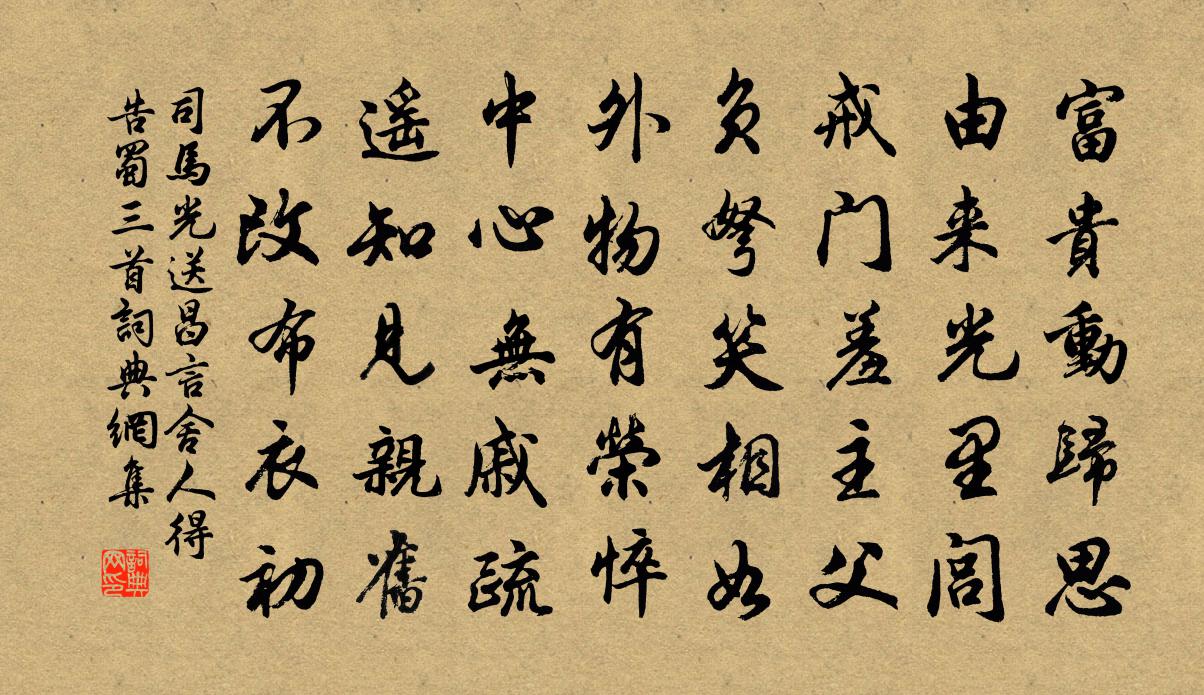 富貴動歸思
由来光里閭
戒門羞主父
負弩笑相如
外物有榮悴
中心無戚疏
遥知見親舊
不改布衣初
司馬光送昌言舍人得
告蜀三首詞典網集
詞典网印